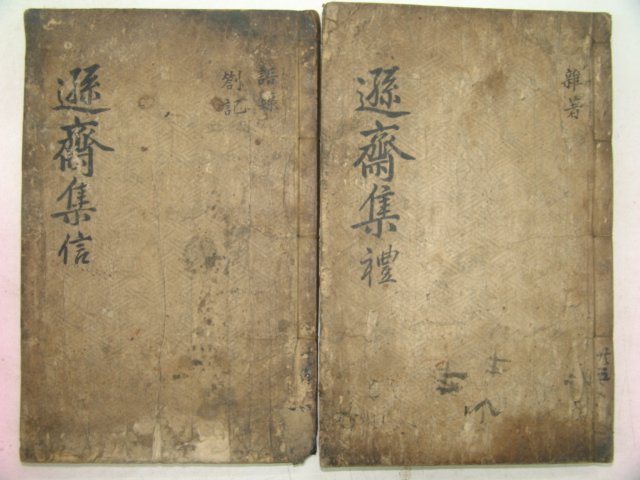 雜著
遜齋集禮
共五
語錄
劄記
遜齋集信